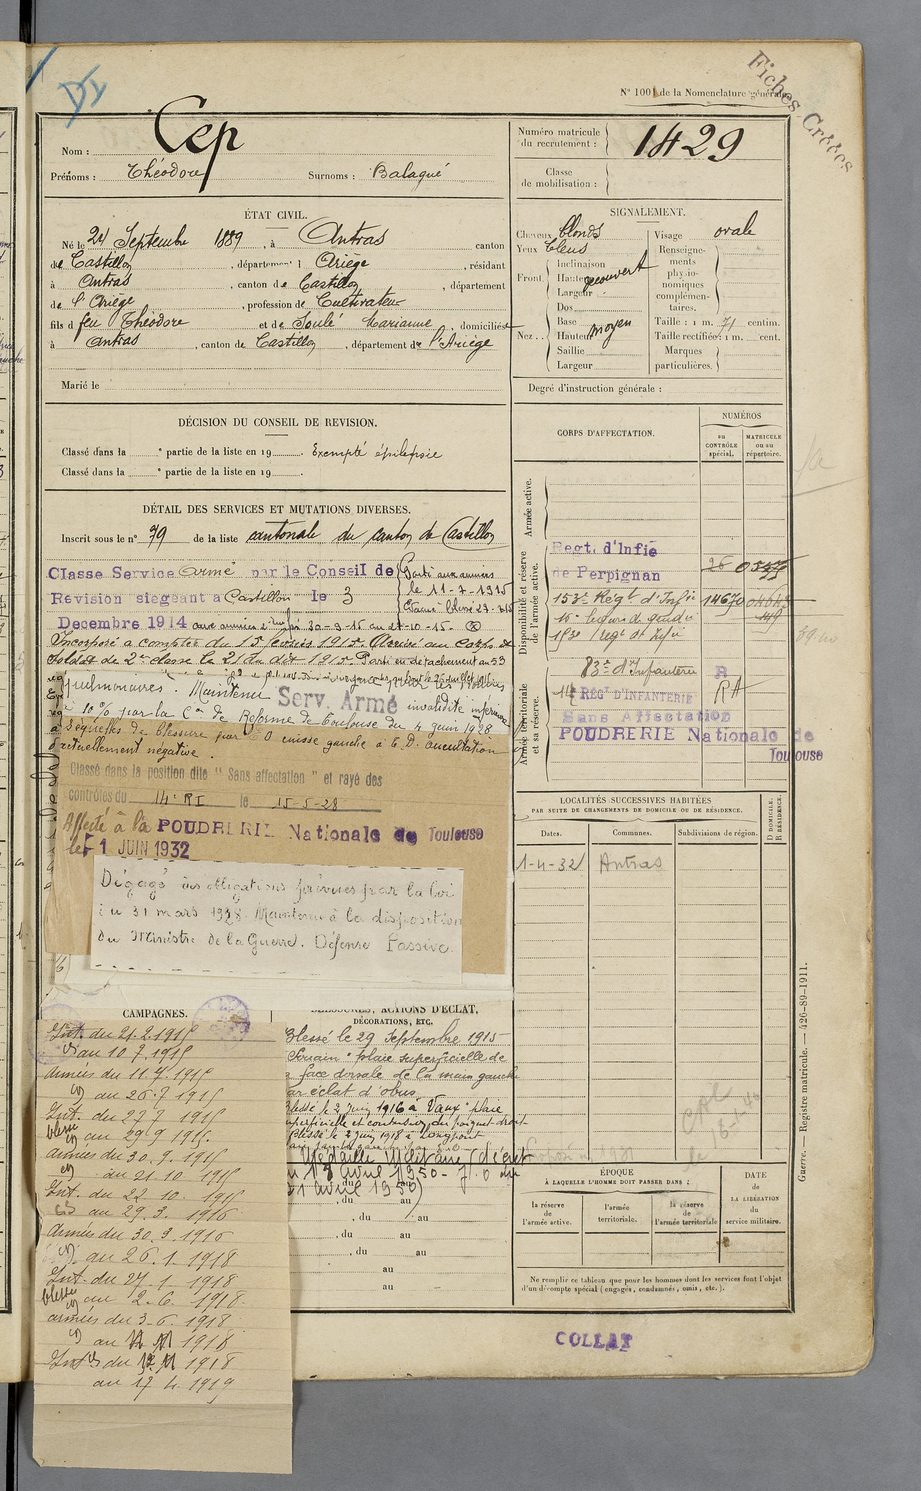 Fiches Créées
N° 1001 de la Nomenclature générale
Nom : Cep
Prénoms : Théodore Surnoms : Balagué
Numéro matricule du recrutement : 1429
Classe de mobilisation :
ÉTAT CIVIL.
Né le 24 Septembre 1889, à Antras canton
de Castillon, département d Ariège, résidant
à Antras, canton de Castillon, département
de l'Ariège, profession de Cultivateur
fils d feu Théodore et de Soulé Marianne, domiciliés
à Antras, canton de Castillon, département de l'Ariège
Marié le
SIGNALEMENT.
Cheveux blonds
Yeux bleus
Front. Inclinaison
Hauteur
Largeur
découvert
Nez.. Dos
Base
Hauteur moyen
Saillie
Largeur
Visage ovale
Renseignements physionomiques complémentaires.
Taille : 1 m. 71 centim.
Taille rectifiée : 1 m. cent.
Marques particulières.
Degré d'instruction générale :
DÉCISION DU CONSEIL DE REVISION.
Classé dans la e partie de la liste en 19 . Exempté épilepsie
Classé dans la e partie de la liste en 19 .
DÉTAIL DES SERVICES ET MUTATIONS DIVERSES.
Inscrit sous le n° 79 de la liste cantonale du canton de Castillon
Classe Service Armé par le Conseil de
Revision siégeant à Castillon le 3
Decembre 1914
Parti aux armées
le 11-7-1915
Evacué blessé
aux armées 30-9-15 au 21-10-15
Incorporé à compter du 15 février 1915. Arrivé au corps et
soldat de 2e classe le 21 du dit 1915. Parti en détachement au 53
pulmonaires. Maintenu Serv. Armé invalidité inférieure
à 10% par la Con de Réforme de Toulouse du 4 juin 1928
Séquelles de blessure par cuisse gauche à E.D. auscultation
actuellement négative.
Classé dans la position dite "Sans affectation" et rayé des
contrôles du 14e RI le 15-5-28
Affecté à la POUDRERIE Nationale de Toulouse
le 1 JUIN 1932
Dégagé des obligations prévues par la loi
du 31 mars 1928. Maintenu à la disposition
du Ministre de la Guerre. Défense Passive.
CORPS D'AFFECTATION.
NUMÉROS
au CONTRÔLE spécial.
MATRICULE ou au répertoire.
Armée active.
Disponibilité et réserve de l'armée active.
Regt. d'Infie
de Perpignan
153e Régt d'Infie 14670
153e régt d'Infie
Armée territoriale et sa réserve.
83e d'Infanterie R
14e RÉGt D'INFANTERIE RA
Sans Affectation
POUDRERIE Nationale de
Toulouse
LOCALITÉS SUCCESSIVES HABITÉES
PAR SUITE DE CHANGEMENTS DE DOMICILE OU DE RÉSIDENCE.
D DOMICILE. R RÉSIDENCE.
Dates. Communes. Subdivisions de région.
1-4-32 Antras
CAMPAGNES.
Int. du 21.2.1915
au 10.7.1915
Armées du 11.7.1915
au 26.7.1915
Int. du 27.7.1915
blessé au 29.9.1915
armées du 30.9.1915
au 21.10.1915
Int. du 22.10.1915
au 29.3.1916
Armées du 30.3.1916
au 26.1.1918
Int. du 27.1.1918
blessé au 2.6.1918
armées du 3.6.1918
au 11 1918
Int. du 11 1918
au 17.4.1919
BLESSURES, ACTIONS D'ÉCLAT,
DÉCORATIONS, ETC.
Blessé le 29 Septembre 1915
Souain "plaie superficielle de
face dorsale de la main gauche
par éclat d'obus
Blessé le 2 juin 1916 à Vaux "plaie
superficielle et contusion du poignet droit
Blessé le 2 juin 1918 à Longpont
Médaille Militaire (décret
du 18 avril 1950 - J.O
21 avril 1950)
, du au
, du au
, du au
, du au
au
au
ÉPOQUE
À LAQUELLE L'HOMME DOIT PASSER DANS :
la réserve de l'armée active.
l'armée territoriale.
la réserve de l'armée territoriale
DATE de LA LIBÉRATION du service militaire.
Ne remplir ce tableau que pour les hommes dont les services font l'objet
d'un décompte spécial (engagés, condamnés, omis, etc.).
Guerre. — Registre matricule. — 426-89-1911.
COLLAT